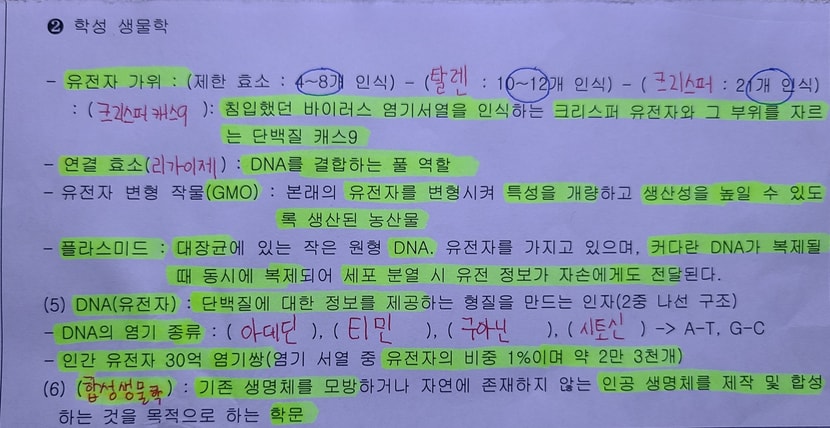 ❷ 학성 생물학
- 유전자 가위 : (제한 효소 : 4~8개 인식) - (탈렌 : 10~12개 인식) - (크리스퍼 : 21개 인식)
: (크리스퍼 캐스9 ): 침입했던 바이러스 염기서열을 인식하는 크리스퍼 유전자와 그 부위를 자르
는 단백질 캐스9
- 연결 효소(리가이제) : DNA를 결합하는 풀 역할
- 유전자 변형 작물(GMO) : 본래의 유전자를 변형시켜 특성을 개량하고 생산성을 높일 수 있도
록 생산된 농산물
- 플라스미드 : 대장균에 있는 작은 원형 DNA. 유전자를 가지고 있으며, 커다란 DNA가 복제될
때 동시에 복제되어 세포 분열 시 유전 정보가 자손에게도 전달된다.
(5) DNA(유전자) : 단백질에 대한 정보를 제공하는 형질을 만드는 인자(2중 나선 구조)
- DNA의 염기 종류 : ( 아데닌 ), ( 티민 ), ( 구아닌 ), ( 시토신 ) -> A-T, G-C
- 인간 유전자 30억 염기쌍(염기 서열 중 유전자의 비중 1%이며 약 2만 3천개)
(6) (합성생물학) : 기존 생명체를 모방하거나 자연에 존재하지 않는 인공 생명체를 제작 및 합성
하는 것을 목적으로 하는 학문